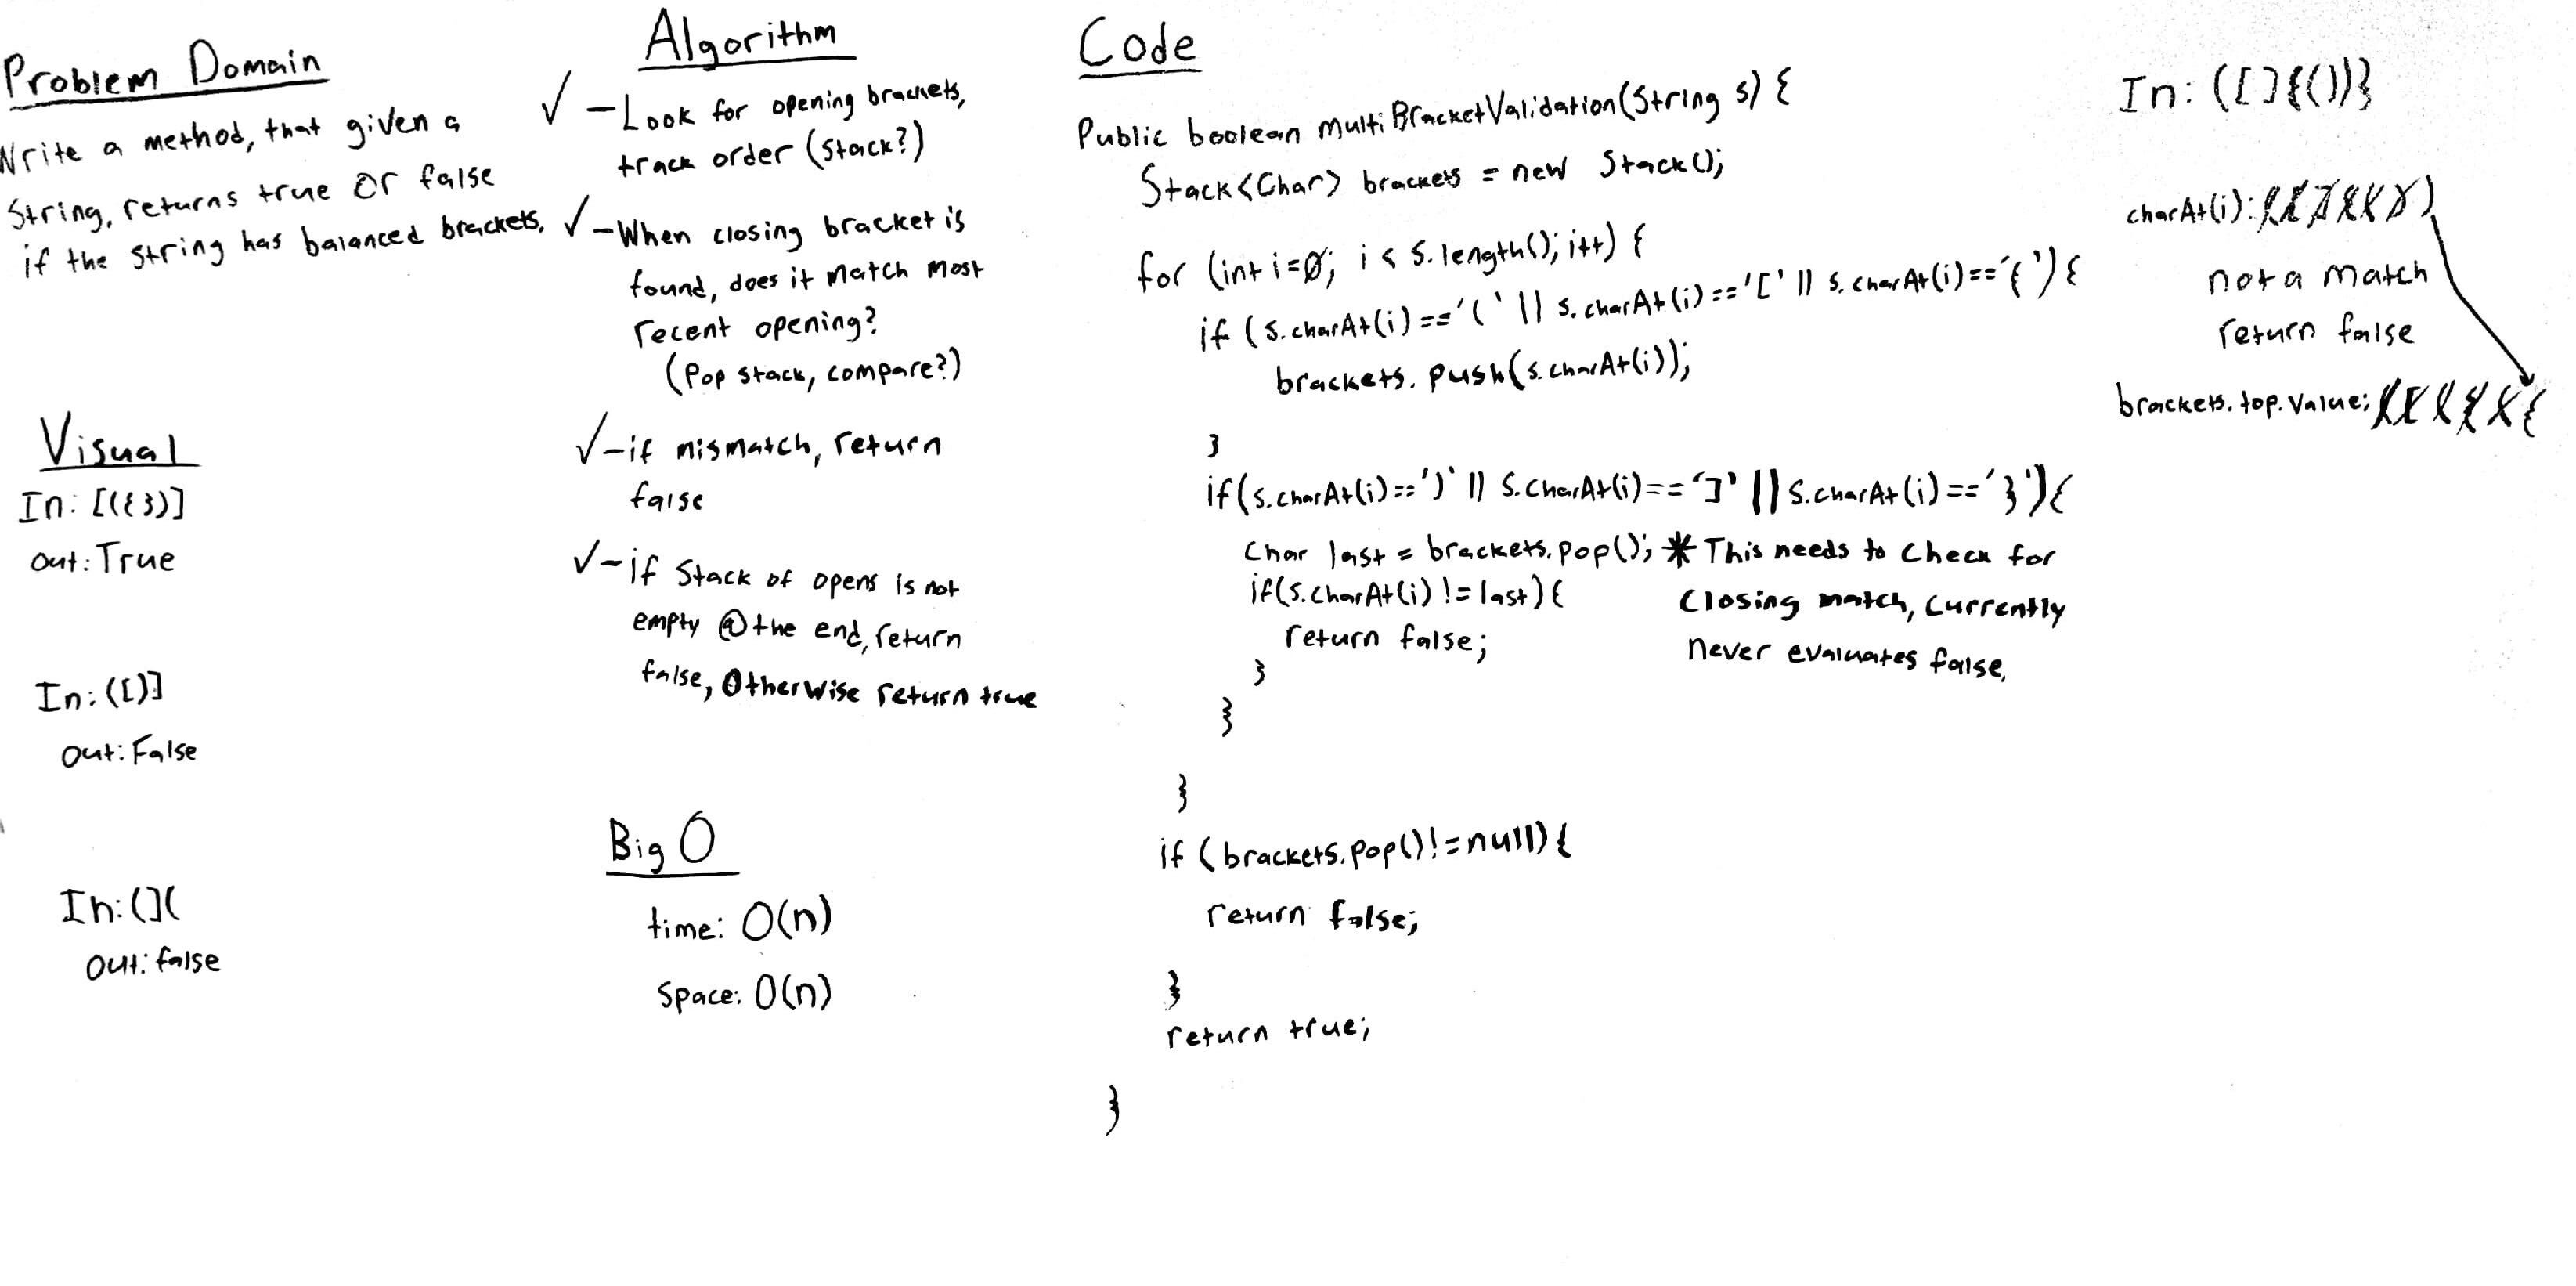 Problem Domain
Write a method, that given a
String, returns true or false
if the string has balanced brackets.
Visual
In: [({})]
out: True
In: ([)]
out: False
In: (](
out: false
Algorithm
✓ -Look for opening brackets,
track order (Stack?)
✓ -When closing bracket is
found, does it match most
recent opening?
(Pop stack, compare?)
✓ -if mismatch, return
false
✓ -if Stack of opens is not
empty @ the end, return
false, Otherwise return true
Big O
time: O(n)
Space: O(n)
Code
Public boolean multiBracketValidation(String s) {
Stack<Char> brackets = new Stack();
for (int i=0; i < s.length(); i++) {
if (s.charAt(i)=='(' || s.charAt(i)=='[' || s.charAt(i)=='{'){
brackets.push(s.charAt(i));
}
if(s.charAt(i)==')' || s.charAt(i)==']' || s.charAt(i)=='}'){
Char last = brackets.pop(); * This needs to check for
if(s.charAt(i) != last){ closing match, currently
return false; never evaluates false.
}
}
}
if (brackets.pop() != null) {
return false;
}
return true;
}
In: ([]{())}
charAt(i): )
not a match
return false
brackets.top.value: {